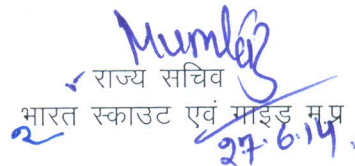 राज्य सचिव
भारत स्काउट एवं गाइड म.प्र
27.6.14.